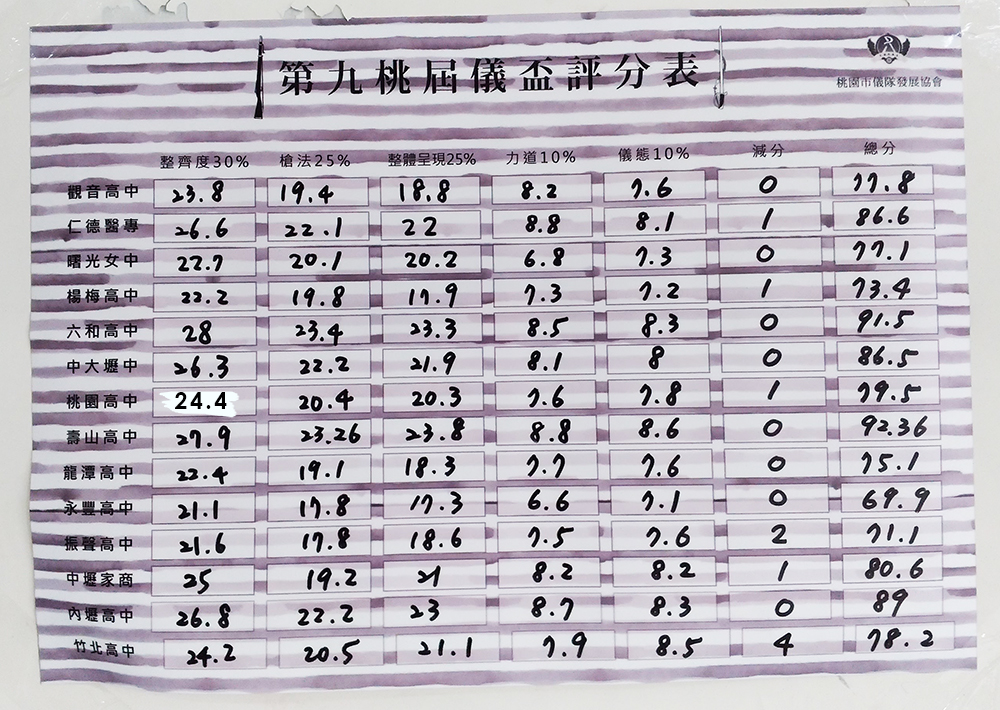 第九桃屆儀盃評分表
桃園市儀隊發展協會
整齊度30% 槍法25% 整體呈現25% 力道10% 儀態10% 減分 總分
觀音高中 23.8 19.4 18.8 8.2 7.6 0 77.8
仁德醫專 26.6 22.1 22 8.8 8.1 1 86.6
曙光女中 22.7 20.1 20.2 6.8 7.3 0 77.1
楊梅高中 22.2 19.8 17.9 7.3 7.2 1 73.4
六和高中 28 23.4 23.3 8.5 8.3 0 91.5
中大壢中 26.3 22.2 21.9 8.1 8 0 86.5
桃園高中 24.4 20.4 20.3 7.6 7.8 1 79.5
壽山高中 27.9 23.26 23.8 8.8 8.6 0 92.36
龍潭高中 22.4 19.1 18.3 7.7 7.6 0 75.1
永豐高中 21.1 17.8 17.3 6.6 7.1 0 69.9
振聲高中 21.6 17.8 18.6 7.5 7.6 2 71.1
中壢家商 25 19.2 21 8.2 8.2 1 80.6
內壢高中 26.8 22.2 23 8.7 8.3 0 89
竹北高中 24.2 20.5 21.1 7.9 8.5 4 78.2